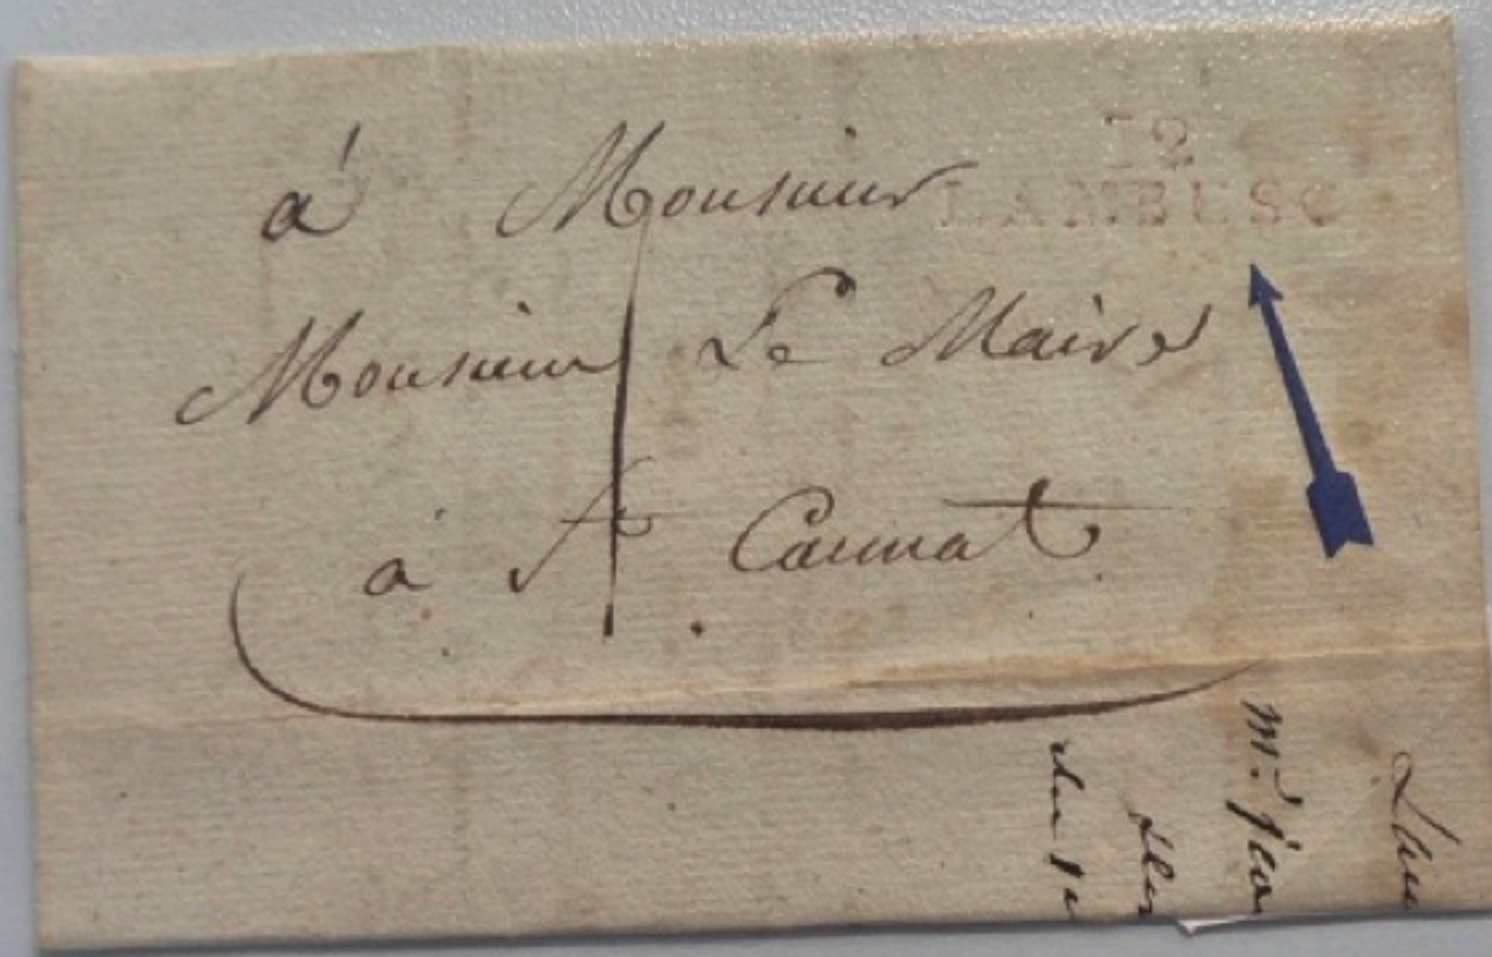 12
LAMBESC
à Monsieur
Monsieur Le Maire
à St Cannat
mr